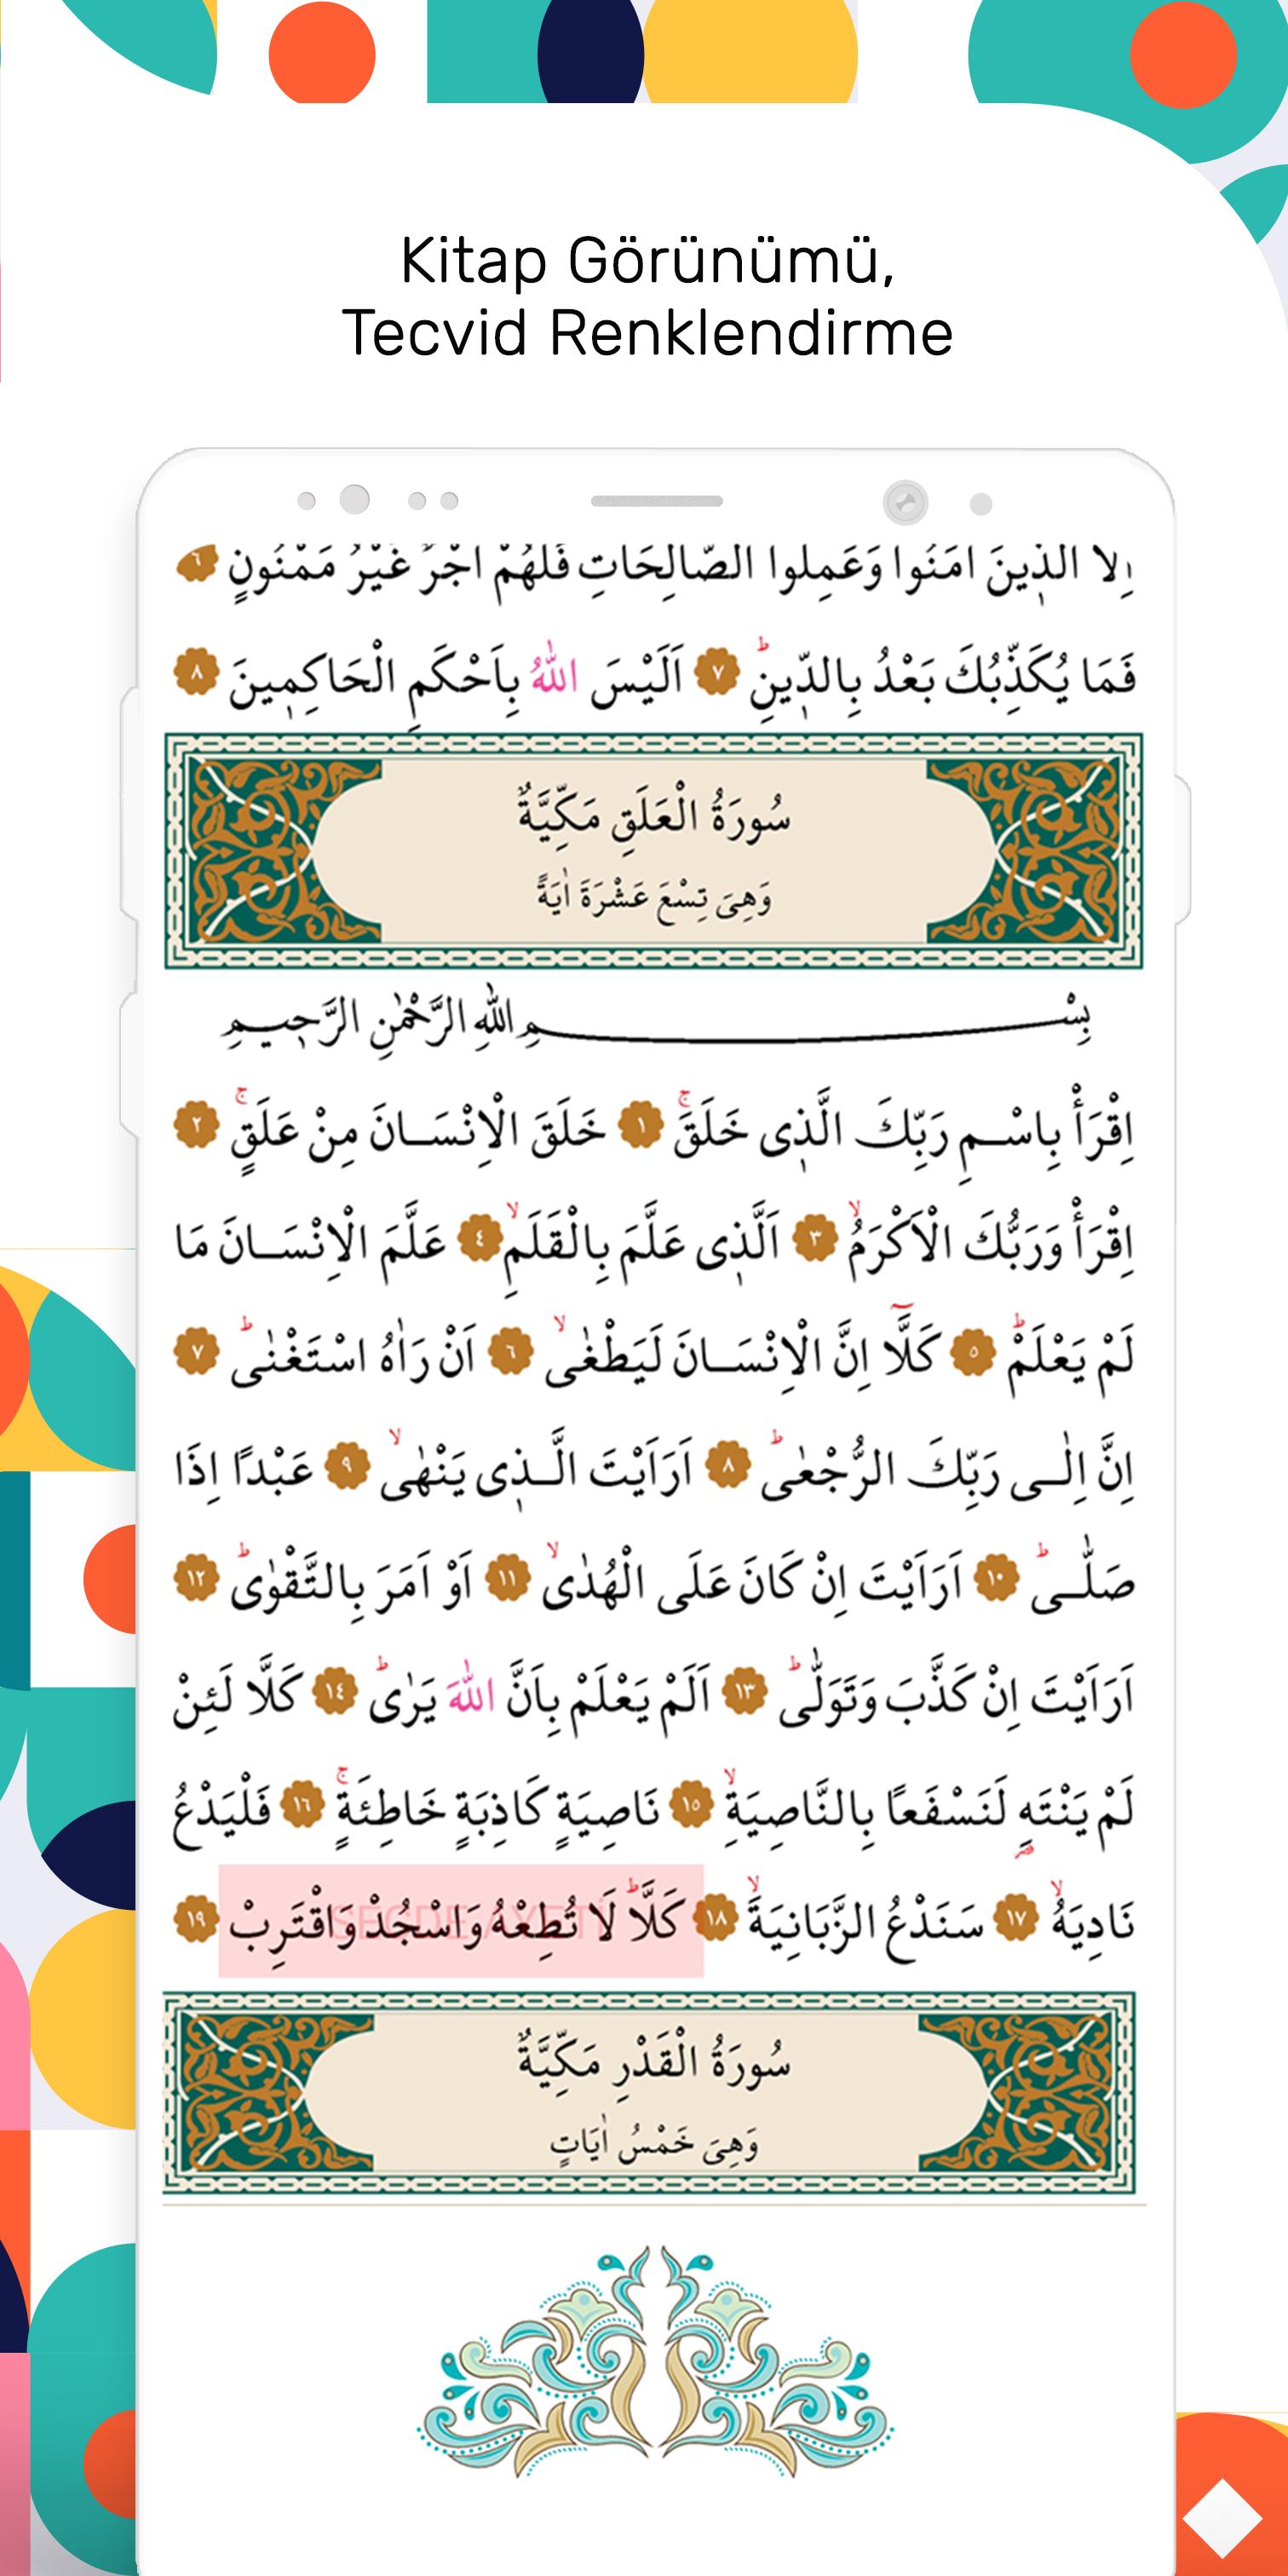 Kitap Görünümü,
Tecvid Renklendirme
اِلَّا الَّذٖينَ اٰمَنُوا وَعَمِلُوا الصَّالِحَاتِ فَلَهُمْ اَجْرٌ غَيْرُ مَمْنُونٍ ٦
فَمَا يُكَذِّبُكَ بَعْدُ بِالدّٖينِ ؕ ٧ اَلَيْسَ اللّٰهُ بِاَحْكَمِ الْحَاكِمٖينَ ٨
سُورَةُ الْعَلَقِ مَكِّيَّةٌ
وَهِىَ تِسْعَ عَشْرَةَ اٰيَةً
بِسْمِ اللّٰهِ الرَّحْمٰنِ الرَّحٖيمِ
اِقْرَأْ بِاسْمِ رَبِّكَ الَّذٖى خَلَقَۚ ١ خَلَقَ الْاِنْسَانَ مِنْ عَلَقٍۚ ٢
اِقْرَأْ وَرَبُّكَ الْاَكْرَمُۙ ٣ اَلَّذٖى عَلَّمَ بِالْقَلَمِۙ ٤ عَلَّمَ الْاِنْسَانَ مَا
لَمْ يَعْلَمْؕ ٥ كَلَّٓا اِنَّ الْاِنْسَانَ لَيَطْغٰىۙ ٦ اَنْ رَاٰهُ اسْتَغْنٰىؕ ٧
اِنَّ اِلٰى رَبِّكَ الرُّجْعٰىؕ ٨ اَرَاَيْتَ الَّذٖى يَنْهٰىۙ ٩ عَبْدًا اِذَا
صَلّٰىؕ ١٠ اَرَاَيْتَ اِنْ كَانَ عَلَى الْهُدٰىۙ ١١ اَوْ اَمَرَ بِالتَّقْوٰىؕ ١٢
اَرَاَيْتَ اِنْ كَذَّبَ وَتَوَلّٰىؕ ١٣ اَلَمْ يَعْلَمْ بِاَنَّ اللّٰهَ يَرٰىؕ ١٤ كَلَّا لَئِنْ
لَمْ يَنْتَهِ لَنَسْفَعًا بِالنَّاصِيَةِۙ ١٥ نَاصِيَةٍ كَاذِبَةٍ خَاطِئَةٍۚ ١٦ فَلْيَدْعُ
قصر
نَادِيَهُۙ ١٧ سَنَدْعُ الزَّبَانِيَةَۙ ١٨ كَلَّاؕ لَا تُطِعْهُ وَاسْجُدْ وَاقْتَرِبْ ١٩
SECDE AYETİ
سُورَةُ الْقَدْرِ مَكِّيَّةٌ
وَهِىَ خَمْسُ اٰيَاتٍ